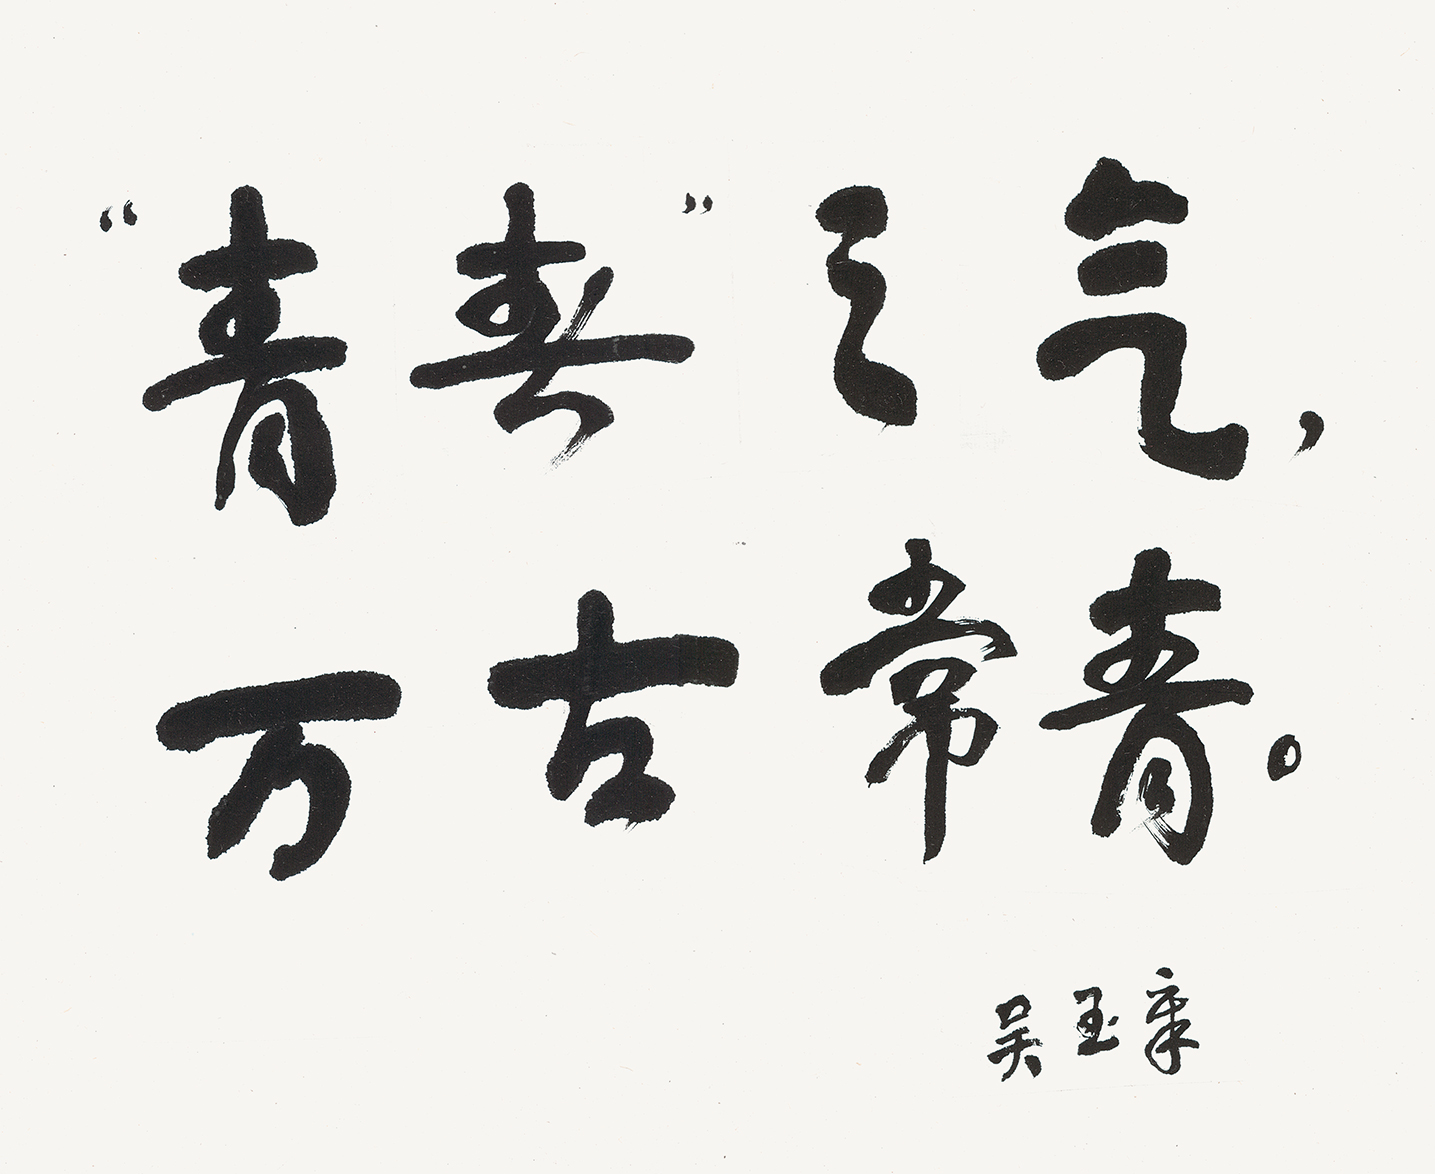 “青春”之气，
万古常青。
吴玉章